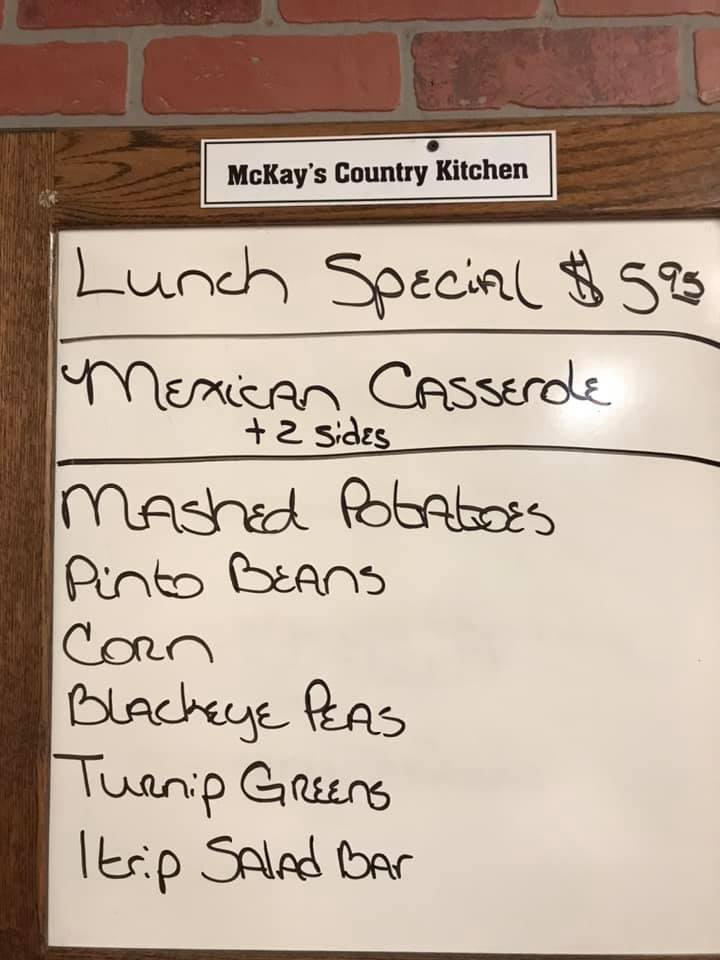 McKay's Country Kitchen
Lunch Special $5.95
Mexican Casserole
+ 2 sides
Mashed Potatoes
Pinto Beans
Corn
Blackeye Peas
Turnip Greens
1 trip Salad Bar